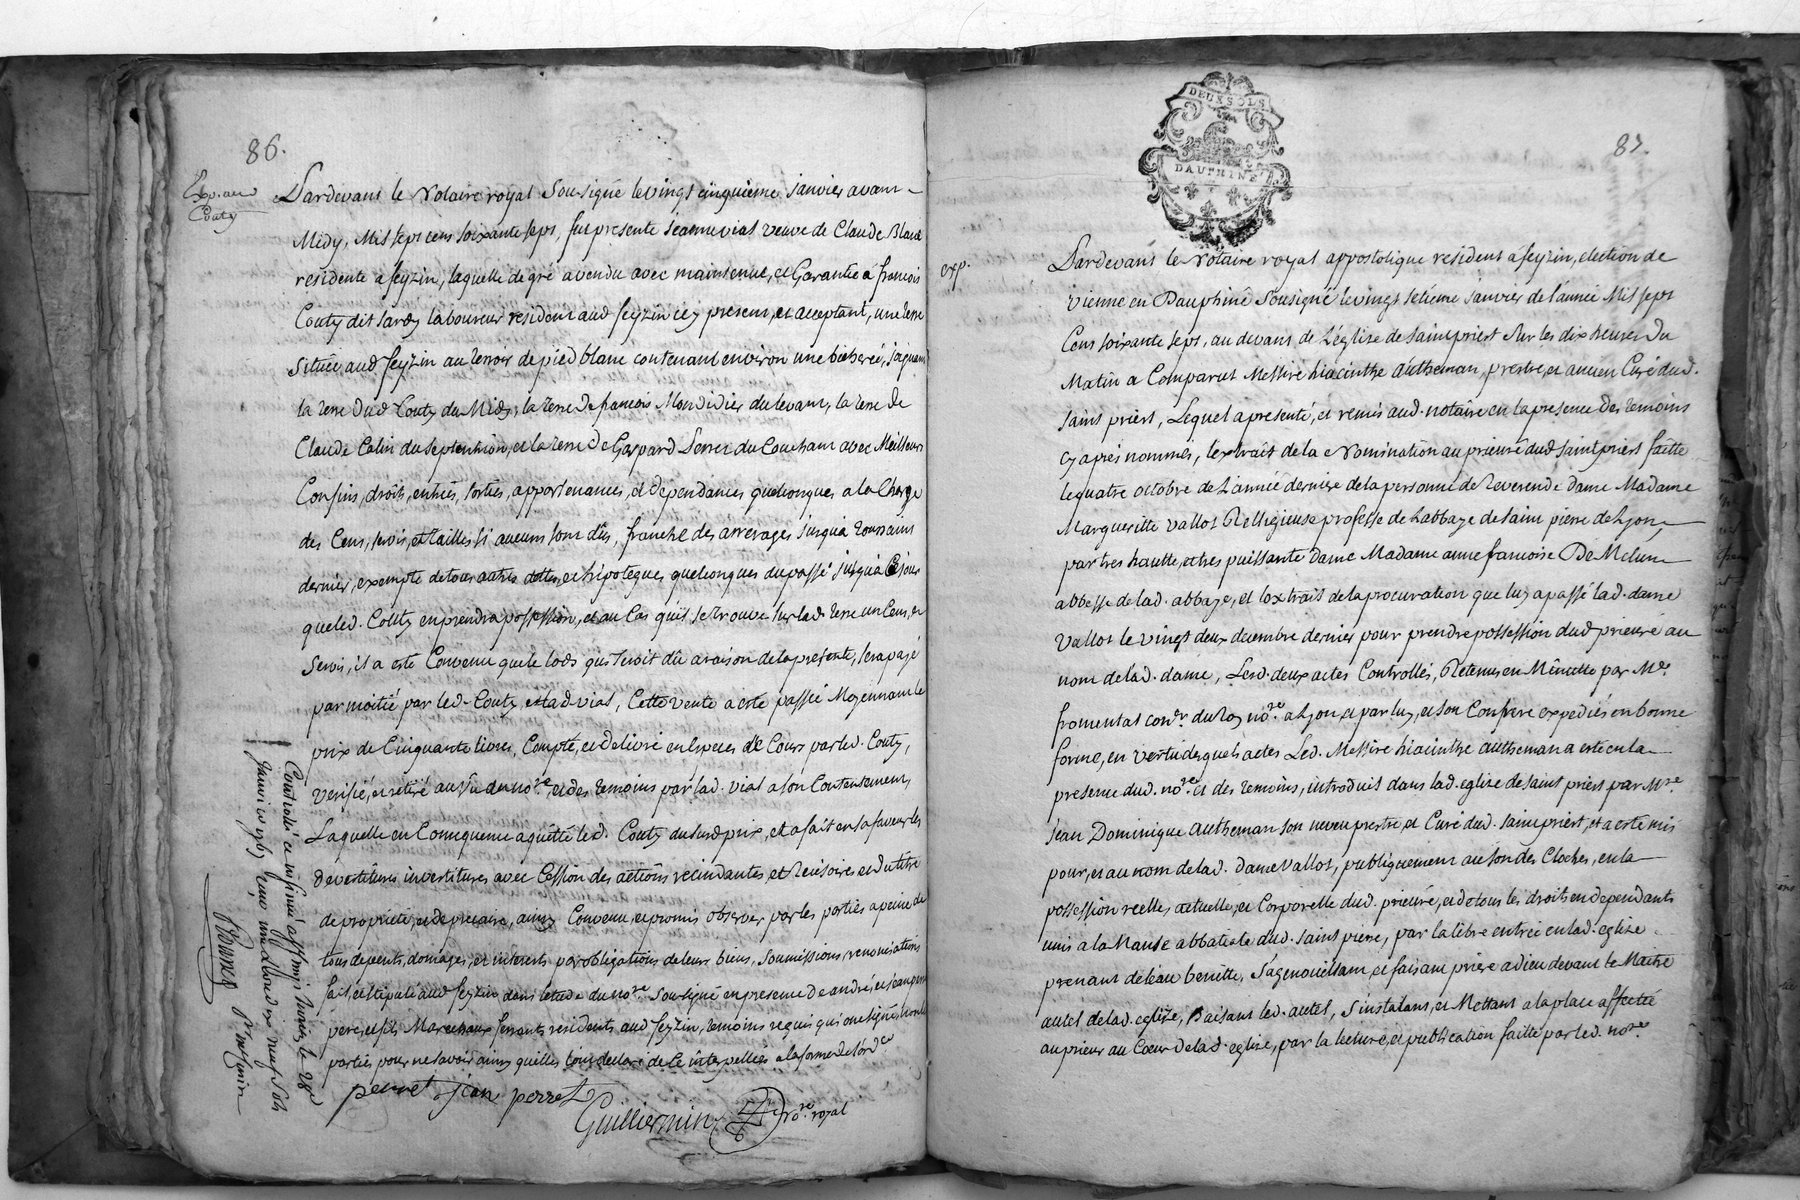 86.
Exp. aud
Couty
Pardevant le Notaire royal Sousigné le vingt cinquieme janvier avant
Midy, Mil sept cens soixante sept, fut presente jeanne vial veuve de Claude Bland
residente a feyzin, laquelle de gré a vendu avec maintenue, et Garantie a françois
Couty dit Sardy laboureur resident aud feyzin icy present, et acceptant, une terre
Située aud feyzin au terroir de pied blanc contenant environ une bicherée, joignant
la terre dud Couty du Midy, la terre de francois Mondidier du levant, la terre de
Claude Colin du Septentrion, et la terre de Gaspard Perret du Couchant avec Meilleurs
Confins, droits, entrées, sorties, appartenances, et dependances quelconques a la Charge
des Cens, servis, et tailles si aucuns sont dûs, franche des arrerages jusqua toussaint
dernier, exempte de tous autres dettes, et hipoteques quelconques du passé jusqu'à Ce jour
que led. Couty en prendra possession, et au Cas qu'il se trouve sur lad. terre un Cens, et
Servis, il a esté Convenu que le lods qui seroit dû a raison de la presente, sera payé
par moitié par led. Couty, et lad. vial, Cette vente a esté passée Moyennant le
prix de Cinquante livres, Compté, et delivré en Especes de Cours par led. Couty,
verifié, et retiré au vû du no.re, et des temoins par lad. vial a son Contentement,
Laquelle en Consequence a quitté led. Couty du susd prix, et a fait en sa faveur les
devestitures investitures avec Cession des actions recindantes, et recisoires, et du titre
de proprieté, et de precaire, ainsy Convenu, et promis observer par les parties a peine de
tous depents, domages, et interests par obligations de leurs biens, Soumissions, renonciations
fait, et stipulé aud feyzin dans l'etude du no.re Sousigné en presence de andré, et jean perret
pere, et fils Marechaux ferrants residents aud feyzin, temoins requis qui ont signé, non les
parties pour ne savoir ainsy quelles l'ont declaré de Ce interpellées a la forme de l'ord.ce
perret jean perret
Guilliermin no.re royal
Controllé et insinué a St simphorien le 28e
janvier 1767 reçu une livre dix neuf Sols
87.
DEUX SOLS
DAUPHINÉ
exp.
Pardevant le Notaire royal appostolique resident a feyzin, election de
vienne en Dauphiné Sousigné le vingt setiéme janvier de l'année Mil sept
Cens soixante sept, au devant de L'église de saint priest sur les dix heures du
Matin a Comparut Messire hiacinthe autheman, prestre, et ancien Curé dud.
saint priest, Lequel a presenté, et remis aud. notaire en la presence des temoins
cy après nommés, l'extrait de la Nomination au prieuré dud saint priest faitte
le quatre octobre de L'année derniere de la personne de Reverende dame Madame
Margueritte vallot Relligieuse professe de L'abbaye de saint pierre de Lyon,
par tres hautte, et tres puissante dame Madame anne francoise De Melun
abbesse de lad. abbaye, et l'extrait de la procuration que luy a passé lad. dame
vallot le vingt deux decembre dernier pour prendre possession dud prieuré au
nom de lad. dame, Lesd. deux actes Controllés, Retenus en Minutte par M.e
fromental con.er du Roy no.re a Lyon, et par luy, et son Confrere expediés en bonne
forme, en vertu desquels actes Led. Messire hiacinthe autheman a esté en la
presence dud. no.re et des temoins, introduit dans lad. eglise de saint priest par M.re
jean Dominique autheman son neveu prestre, et Curé dud. saint priest, et a esté mis
pour, et au nom de lad. dame vallot, publiquement au son des Cloches, en la
possession reelle, actuelle, et Corporelle dud. prieuré, et de tous les droits en dependants
unis a la Manse abbatiale dud. saint pierre, par la libre entrée en lad. eglise
prenant de l'eau benitte, s'agenouillant, et faisant priere a dieu devant le Maitre
autel de lad. eglise, Baisant led. autel, s'instalant, et Mettant a la place affectée
au prieur au Coeur de lad. eglise, par la lecture, et publication faitte par led. no.re